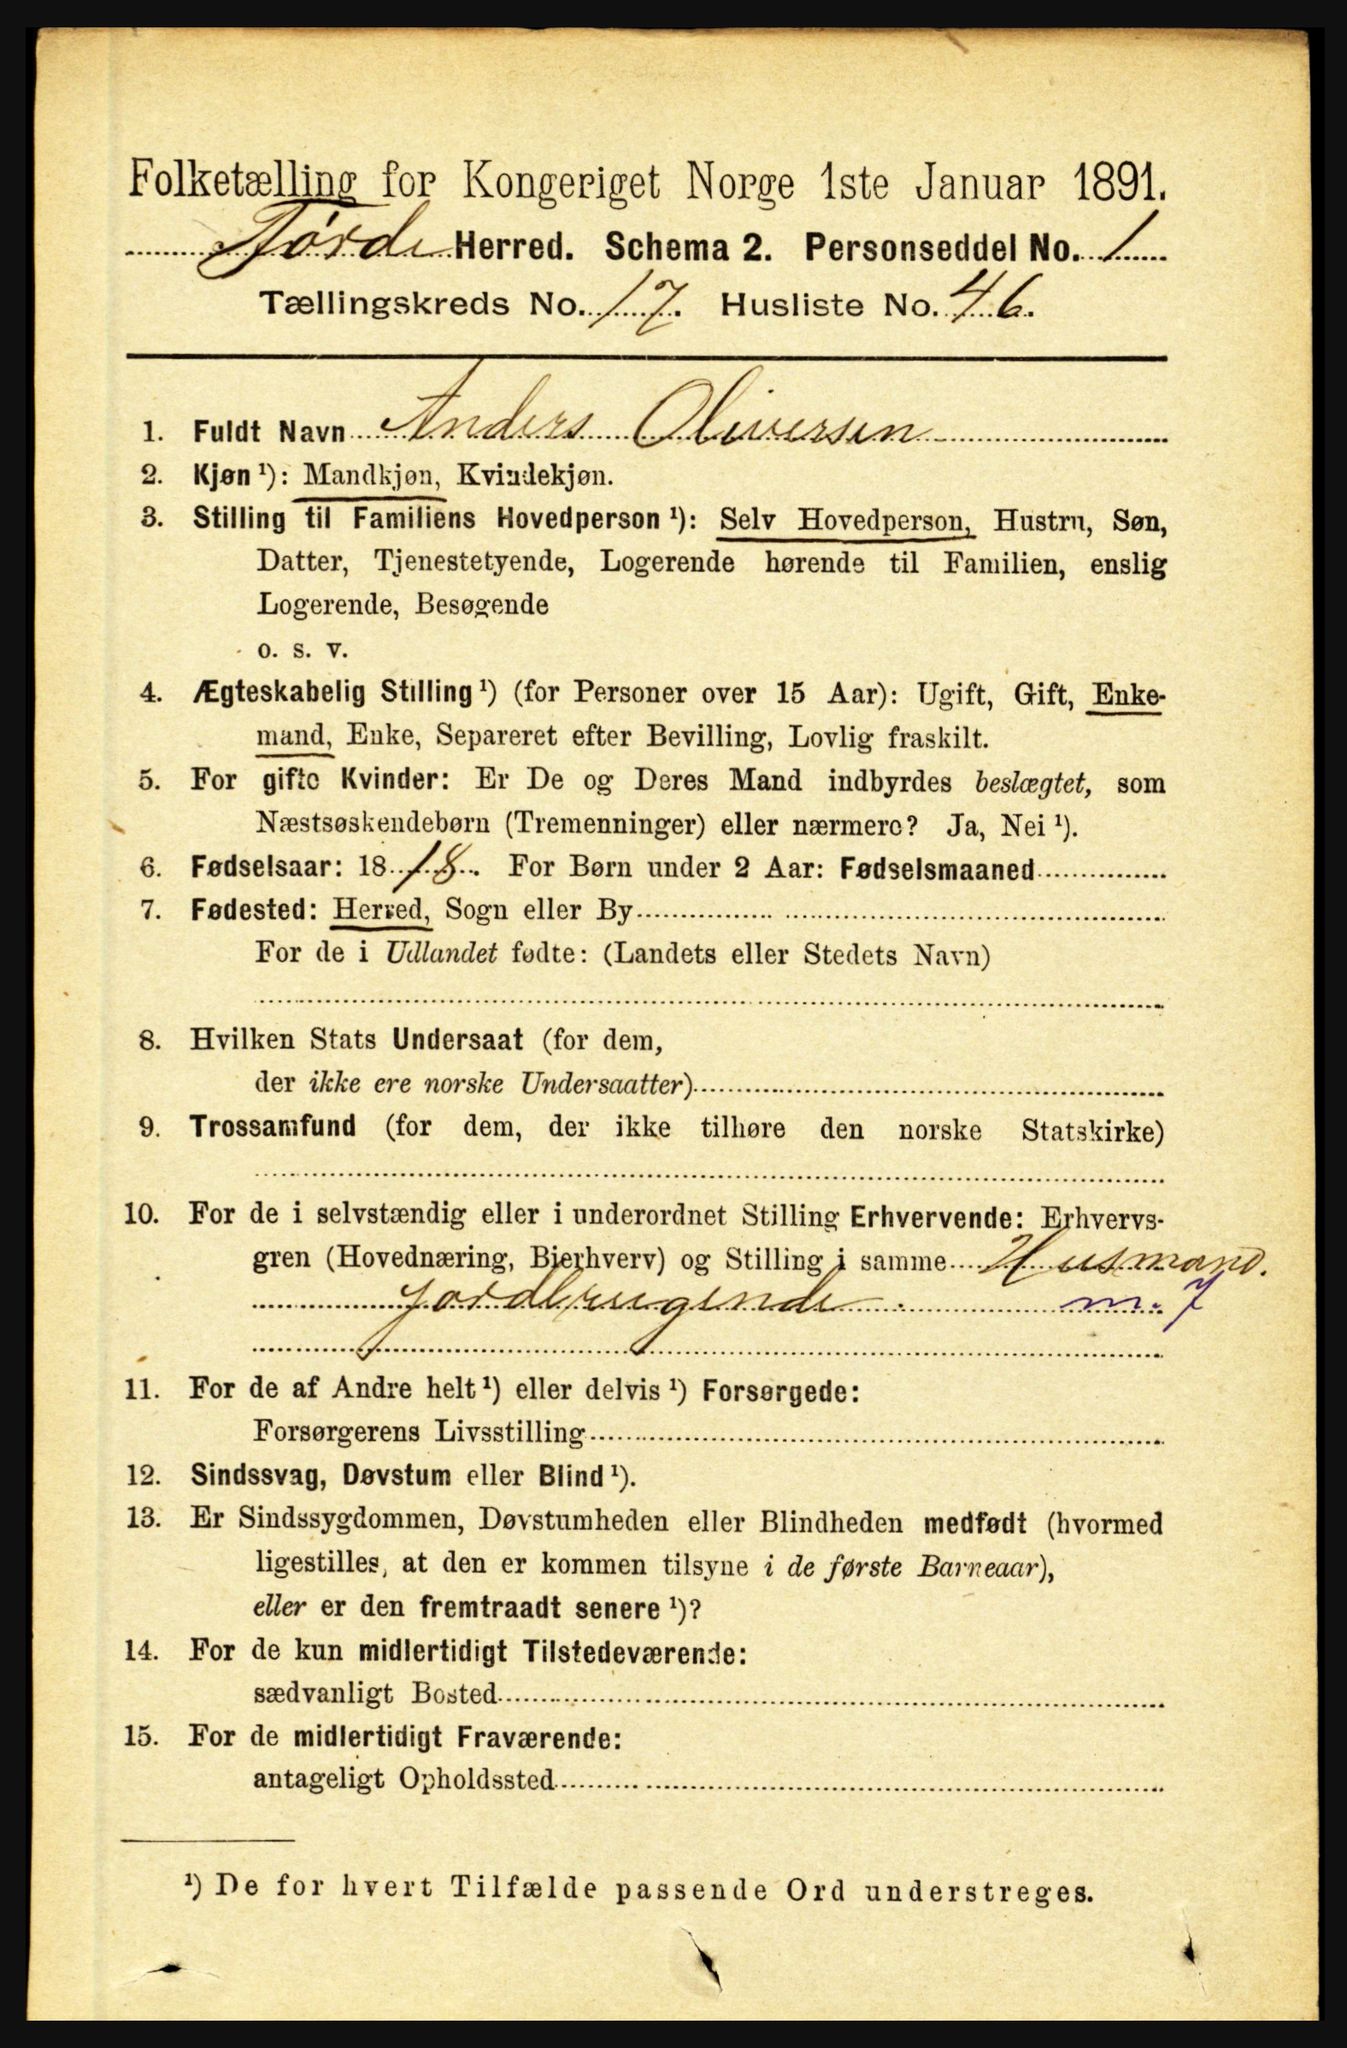 Folketælling for Kongeriget Norge 1ste Januar 1891.
Førde Herred. Schema 2. Personseddel No. 1
Tællingskreds No. 17. Husliste No. 46.
1. Fuldt Navn Anders Oliversen
2. Kjøn ¹): Mandkjøn, Kvindekjøn.
3. Stilling til Familiens Hovedperson ¹): Selv Hovedperson, Hustru, Søn,
Datter, Tjenestetyende, Logerende hørende til Familien, enslig
Logerende, Besøgende
o. s. v.
4. Ægteskabelig Stilling ¹) (for Personer over 15 Aar): Ugift, Gift, Enke-
mand, Enke, Separeret efter Bevilling, Lovlig fraskilt.
5. For gifte Kvinder: Er De og Deres Mand indbyrdes beslægtet, som
Næstsøskendebørn (Tremenninger) eller nærmere? Ja, Nei ¹).
6. Fødselsaar: 1818. For Børn under 2 Aar: Fødselsmaaned
7. Fødested: Herred, Sogn eller By
For de i Udlandet fødte: (Landets eller Stedets Navn)
8. Hvilken Stats Undersaat (for dem,
der ikke ere norske Undersaatter)
9. Trossamfund (for dem, der ikke tilhøre den norske Statskirke)
10. For de i selvstændig eller i underordnet Stilling Erhvervende: Erhvervs-
gren (Hovednæring, Bierhverv) og Stilling i samme Husmand.
jordbrugende. m. J
11. For de af Andre helt ¹) eller delvis ¹) Forsørgede:
Forsørgerens Livsstilling
12. Sindssvag, Døvstum eller Blind ¹).
13. Er Sindssygdommen, Døvstumheden eller Blindheden medfødt (hvormed
ligestilles, at den er kommen tilsyne i de første Barneaar),
eller er den fremtraadt senere ¹)?
14. For de kun midlertidigt Tilstedeværende:
sædvanligt Bosted
15. For de midlertidigt Fraværende:
antageligt Opholdssted
¹) De for hvert Tilfælde passende Ord understreges.